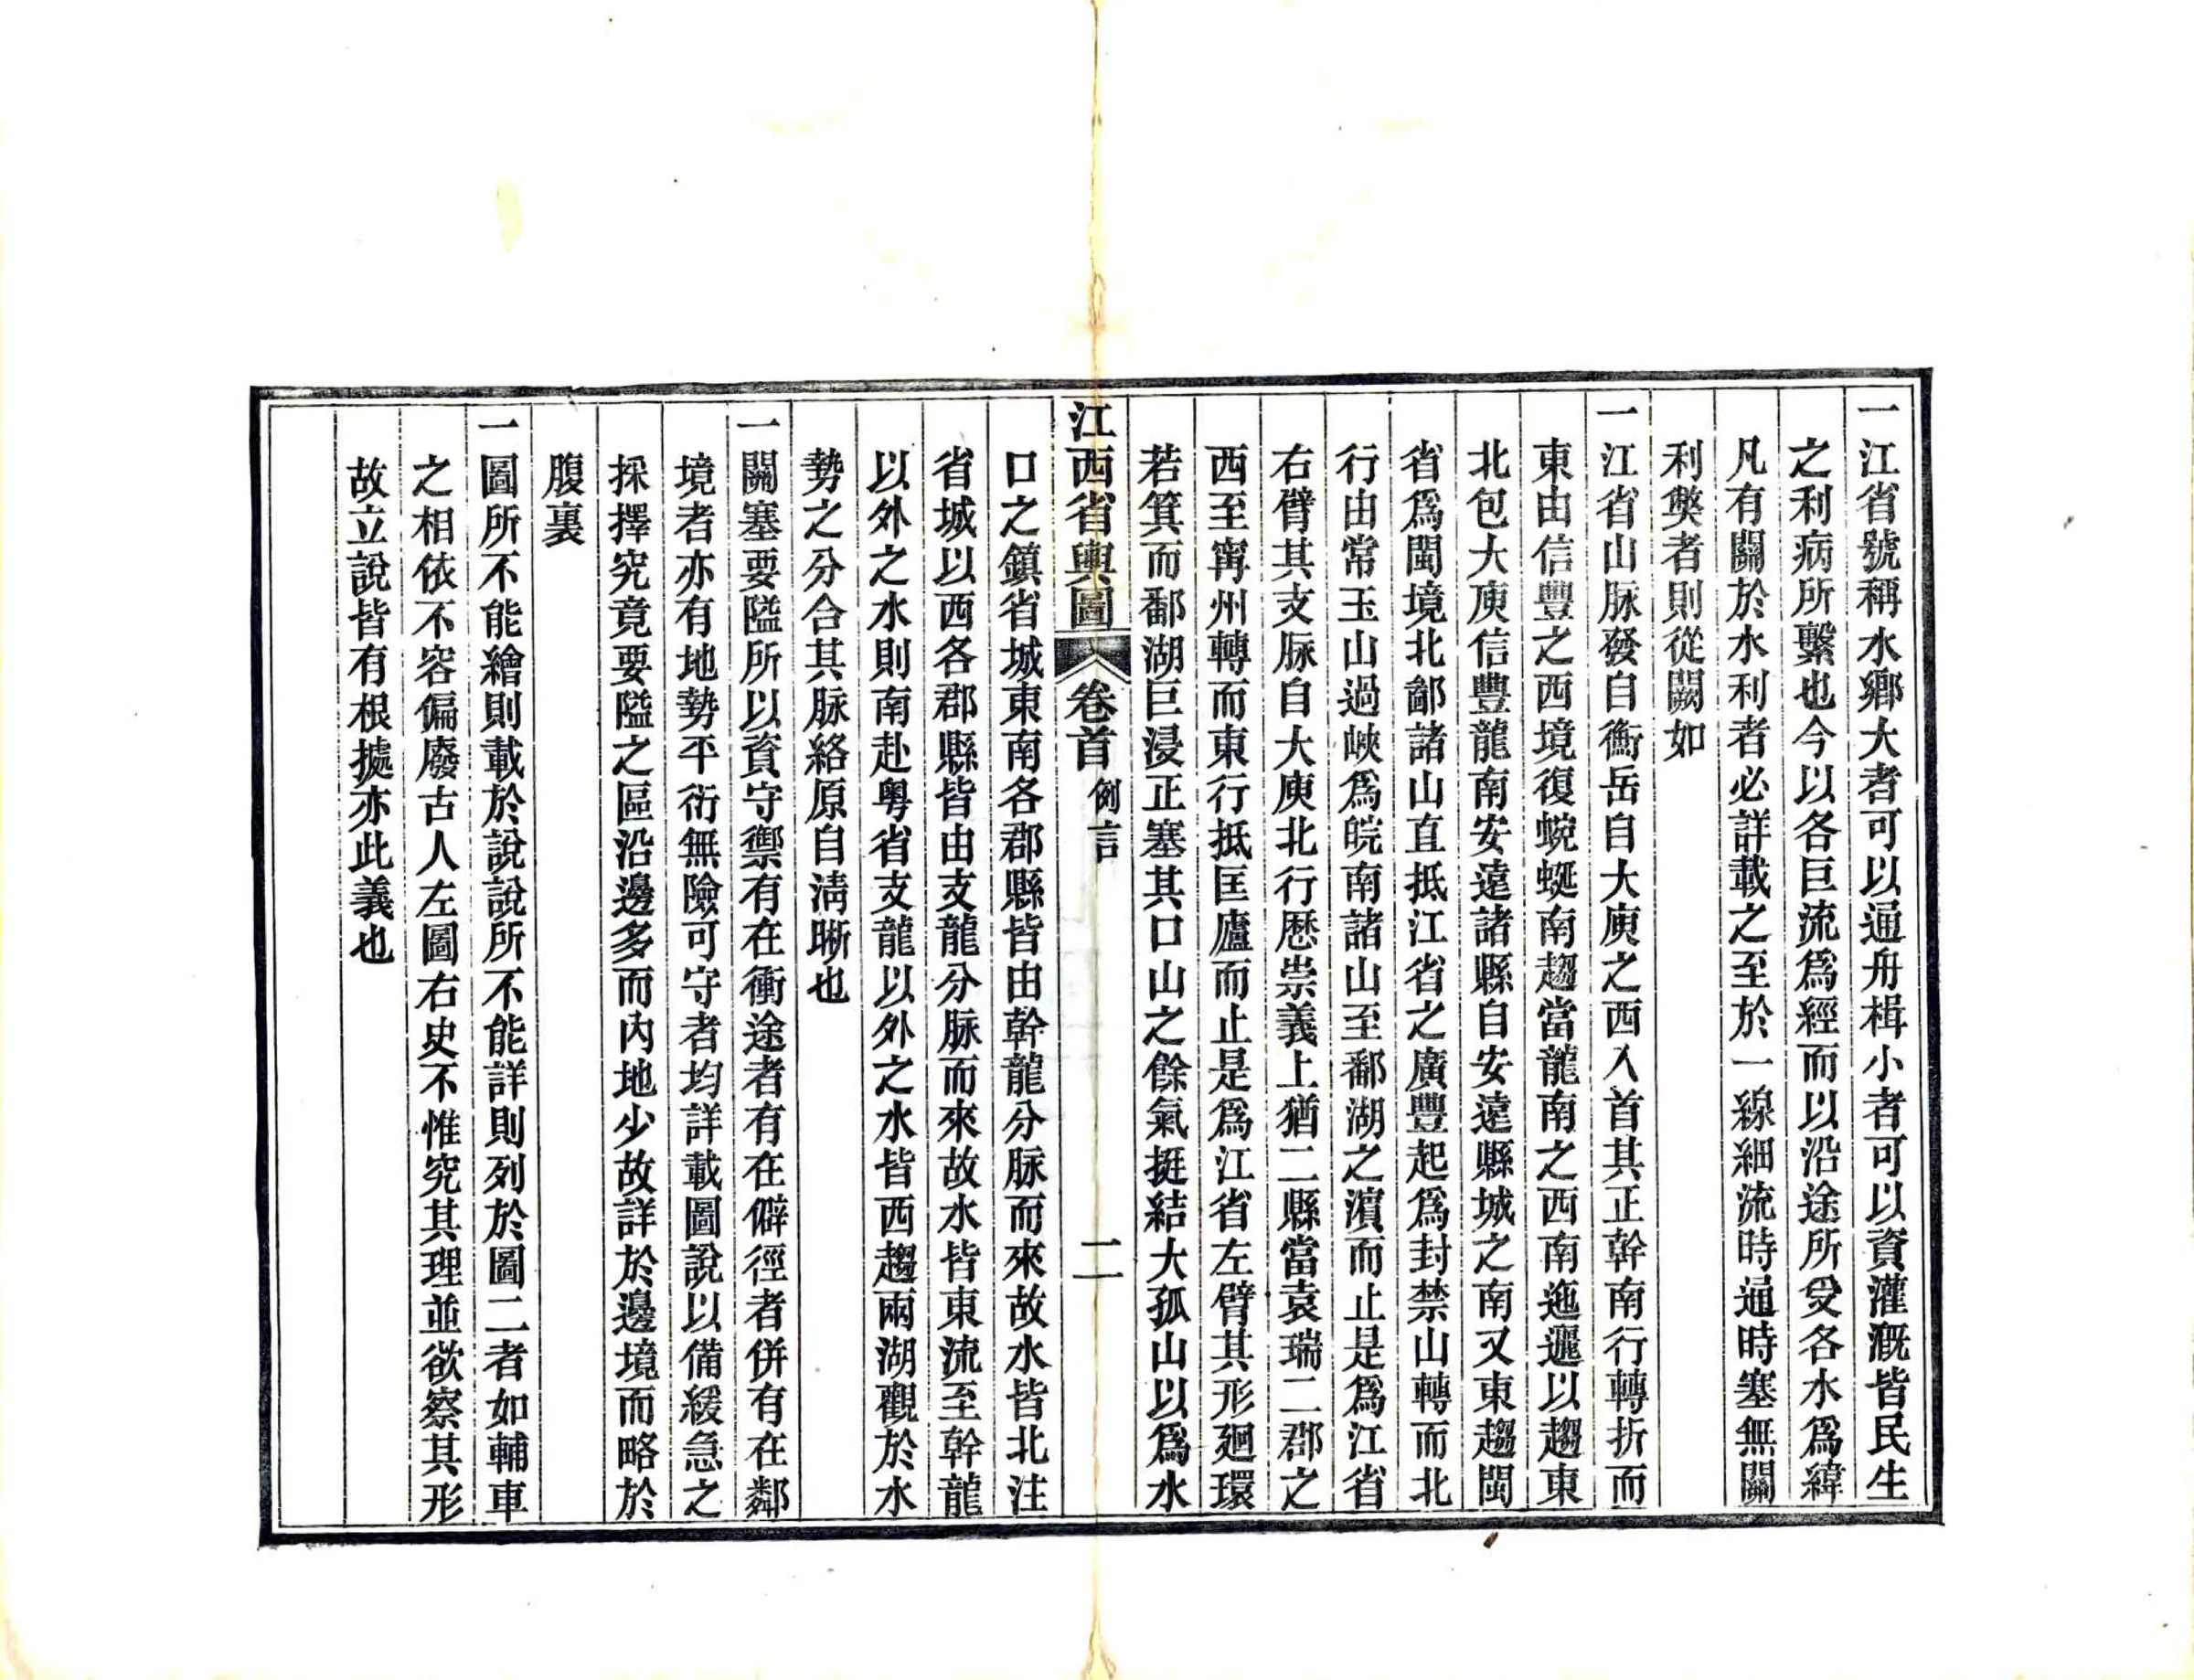 一江省號稱水鄉大者可以通舟楫小者可以資灌溉皆民生
之利病所繫也今以各巨流爲經而以沿途所受各水爲緯
凡有關於水利者必詳載之至於一線細流時通時塞無關
利獘者則從闕如
一江省山脉發自衡岳自大庾之西入首其正幹南行轉折而
東由信豐之西境復蜿蜒南趨當龍南之西南迤邐以趨東
北包大庾信豐龍南安遠諸縣自安遠縣城之南又東趨閩
省爲閩境北鄙諸山直抵江省之廣豐起爲封禁山轉而北
行由常玉山過峽爲皖南諸山至鄱湖之濵而止是爲江省
右臂其支脉自大庾北行歷崇義上猶二縣當袁瑞二郡之
西至甯州轉而東行抵匡廬而止是爲江省左臂其形廻環
若箕而鄱湖巨浸正塞其口山之餘氣挺結大孤山以爲水
江西省輿圖 卷首 例言 二
口之鎮省城東南各郡縣皆由幹龍分脉而來故水皆北注
省城以西各郡縣皆由支龍分脉而來故水皆東流至幹龍
以外之水則南赴粤省支龍以外之水皆西趨兩湖觀於水
勢之分合其脉絡原自淸晣也
一關塞要隘所以資守禦有在衝途者有在僻徑者併有在鄰
境者亦有地勢平衍無險可守者均詳載圖說以備緩急之
採擇究竟要隘之區沿邊多而內地少故詳於邊境而略於
腹裏
一圖所不能繪則載於說說所不能詳則列於圖二者如輔車
之相依不容偏廢古人左圖右史不惟究其理並欲察其形
故立說皆有根據亦此義也